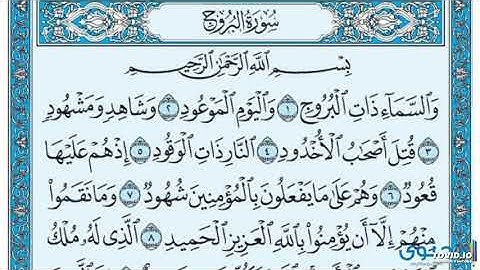 سُورَةُ البُرُوجِ
بِسْمِ اللَّهِ الرَّحْمَٰنِ الرَّحِيمِ
وَالسَّمَاءِ ذَاتِ الْبُرُوجِ ١ وَالْيَوْمِ الْمَوْعُودِ ٢ وَشَاهِدٍ وَمَشْهُودٍ
٣ قُتِلَ أَصْحَابُ الْأُخْدُودِ ٤ النَّارِ ذَاتِ الْوَقُودِ ٥ إِذْ هُمْ عَلَيْهَا
قُعُودٌ ٦ وَهُمْ عَلَىٰ مَا يَفْعَلُونَ بِالْمُؤْمِنِينَ شُهُودٌ ٧ وَمَا نَقَمُوا
مِنْهُمْ إِلَّا أَن يُؤْمِنُوا بِاللَّهِ الْعَزِيزِ الْحَمِيدِ ٨ الَّذِي لَهُ مُلْكُ
YOVID.IO